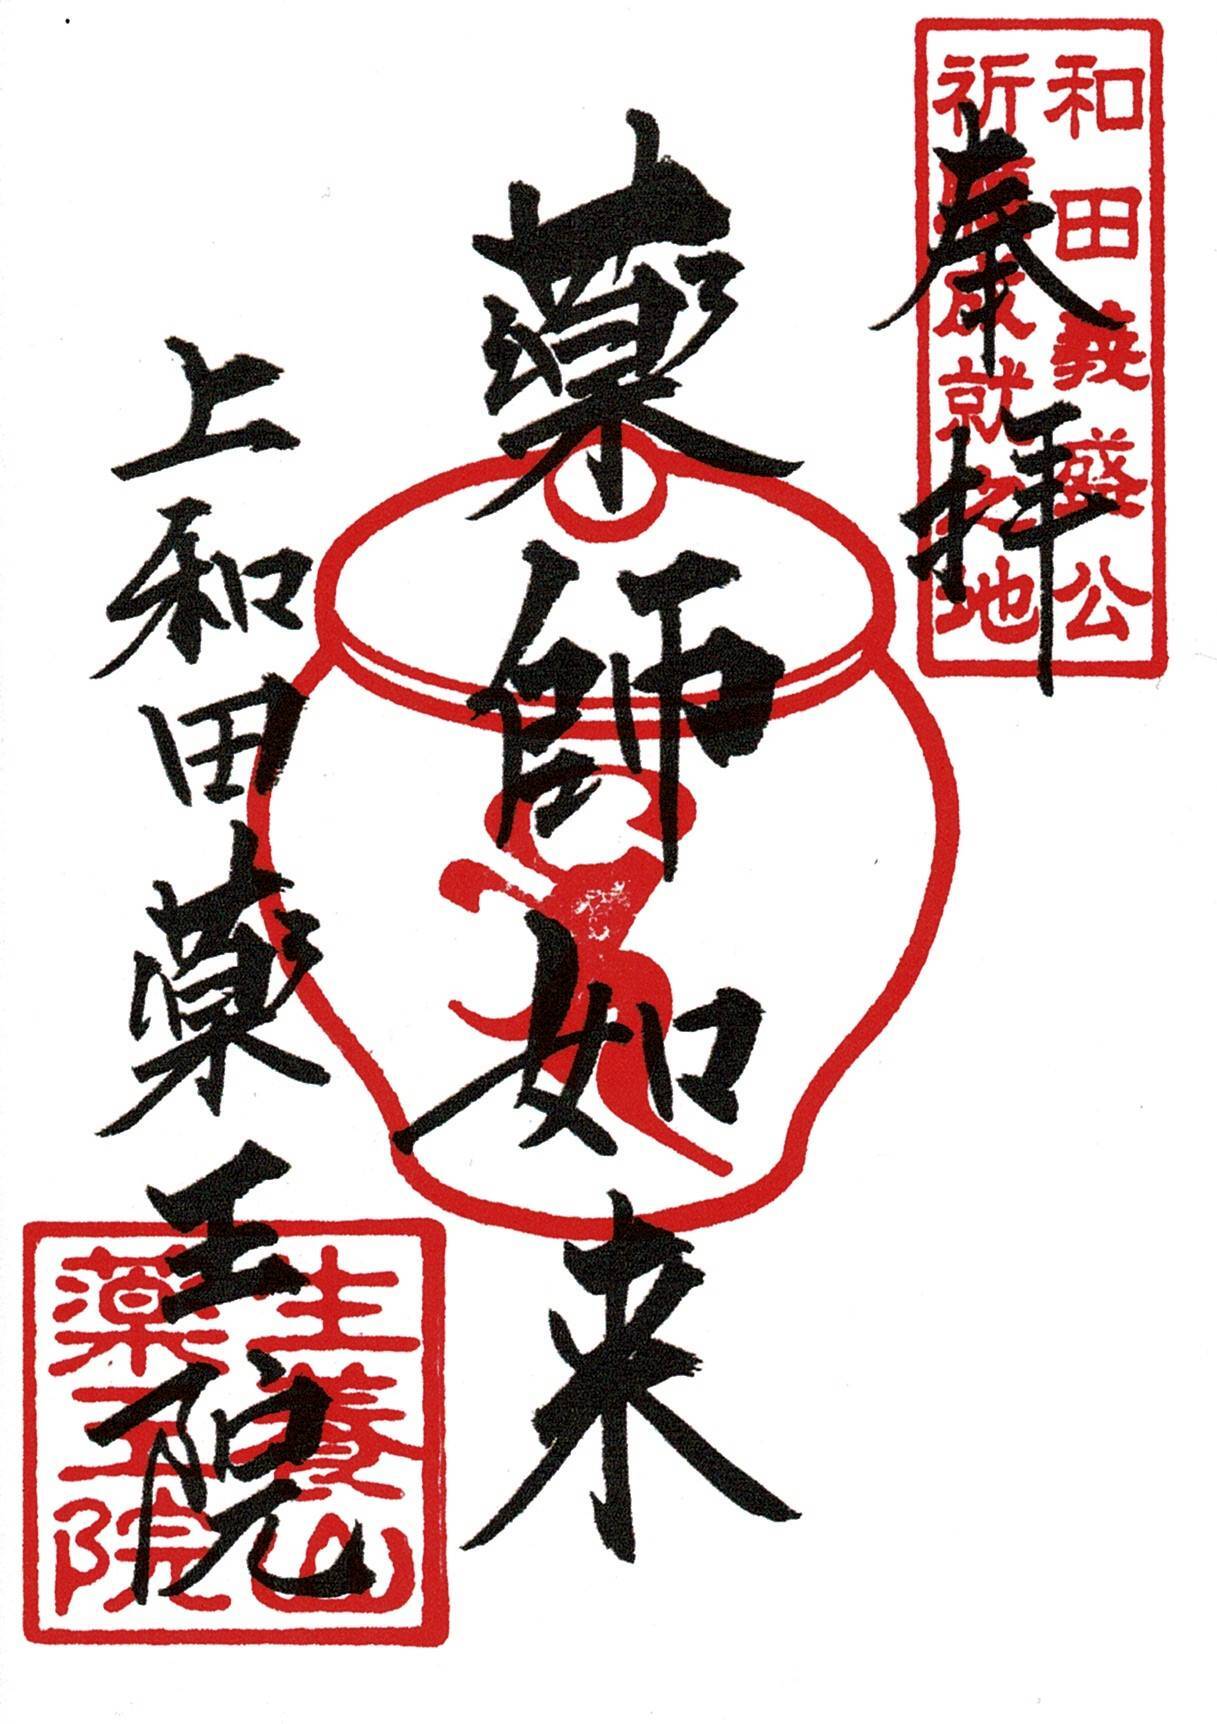 奉拝
和田義盛公
祈願成就之地
薬師如来
上和田薬王院
生養山
薬王院